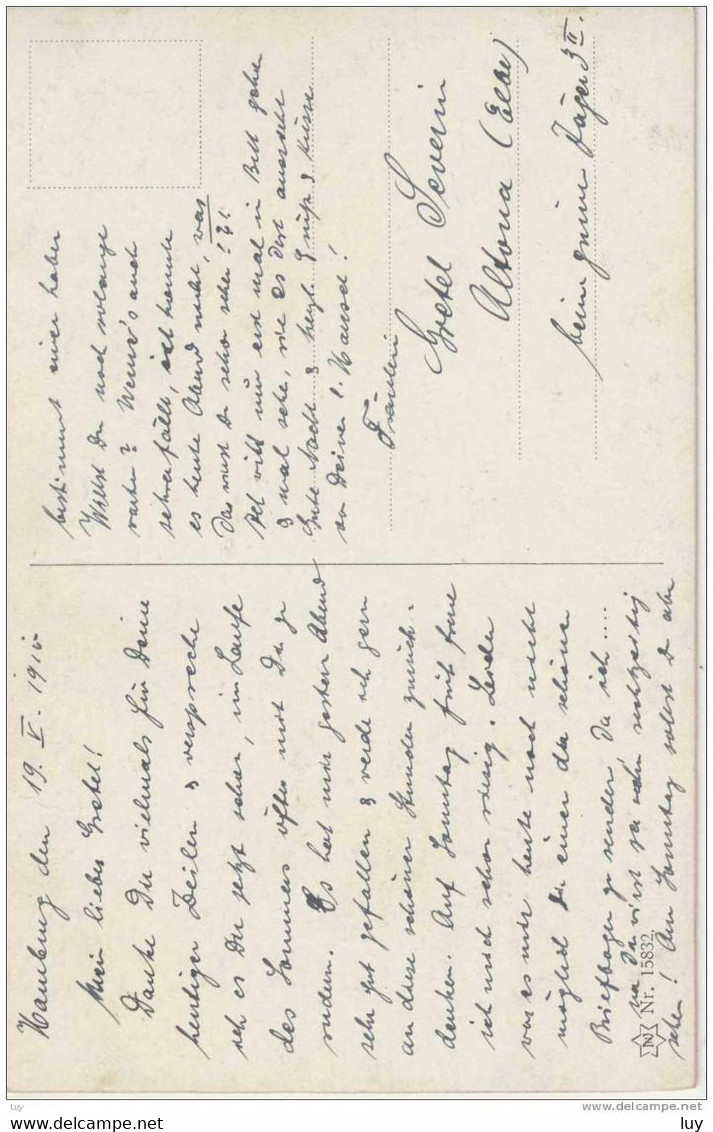 Hamburg den 19. V. 1915
Mein liebes Gretel!
Danke Dir vielmals für Deine
heutigen Zeilen & verspreche
ich es Dir jetzt schon, im Laufe
des Sommers öfters mit Dir zu
rudern. Es hat mir gestern Abend
sehr gut gefallen & werde ich gern
an diese schönen Stunden zurück-
denken. Auf Sonntag früh freue
ich mich schon riesig. Leider
war es mir heute noch nicht
möglich Dir einen der schönen
Briefbogen zu senden, da ich ....
na Du wirst ja schon rechtzeitig
sehen! Am Sonntag sollst D aber
bestimmt einen haben
Willst Du noch solange
warten? Wenn's auch
schwer fällt, ich konnte
es heute Abend nicht, was
Das wirst Du schon sehen!?!
Ich will nun erst mal in Bett gehen
& mal sehen, wie es dort aussieht
Gute Nacht & herzl. Grüße & Küsse
von Deinem l. Hansel!
Fräulein
Gretel Severin
Altona (Elbe)
beim grünen Jäger 3 II.
Nr. 15832.
luy
delcampe.net
www.delcampe.com
luy